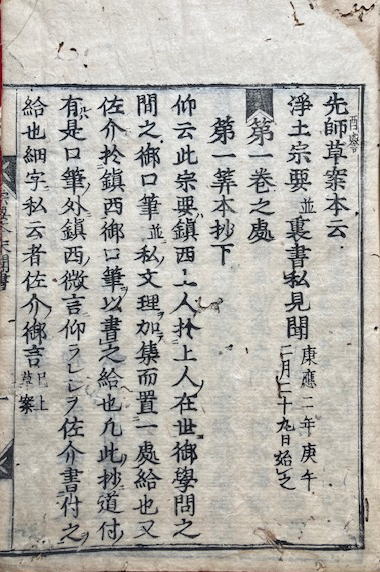 先師草案本云
酉譽
淨土宗要並裏書私見聞
康應二年庚午
二月二十九日始之
第一卷之處
第一筭本抄下
仰云此宗要鎮西上人扵上人在世御學問之
間之御口筆並私文理加集而置一處給也又
佐介扵鎮西御口筆以書之給也凡此抄道付
有是口筆外鎮西微言仰ラレシヲ佐介書付之
給也細字私云者佐介御言已上草案